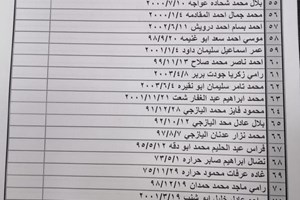 ٥٥ بلال محمد شحاده عواجه ٢٠٠٠/٧/١٠
٥٦ محمد جمال احمد المقادمه ٢٠٠٠/١/٤
٥٧ احمد بسام احمد درويش ٢٠٠٢/٦/١١
٥٨ موسى احمد سعد ابو غنيمه ٩٨/٩/٢٠
٥٩ عمر اسماعيل سليمان داود ٢٠٠١/١/٤
٦٠ احمد ناصر محمد صلاح ٩٩/١١/٢
٦١ رامي زكريا جودت بربر ٢٠٠٣/٤/٨
٦٢ محمد تامر سليمان ابو نقيره ٢٠٠٣/٦/٤
٦٣ محمد ابراهيم عبد الغفار شعت ٢٠٠١/١١/٢١
٦٤ محمود فايز محمد اليازجي ٩١/١٢/٢٨
٦٥ بلال عادل محمد اليازجي ٩٢/١٠/١٢
٦٦ محمد نزار عدنان اليازجي ٩٧/٨/٧
٦٧ فراس عبد الحليم محمد ابو دقه ٩٥/٥/١٢
٦٨ نضال ابراهيم صابر حراره ٧٣/٥/١
٦٩ غاده عرفات محمود حراره ٧٥/١١/٢٩
٧٠ رامي ماجد محمد حمدان ٩٨/١٢/١٩
٢٠٠١/٣/١٩